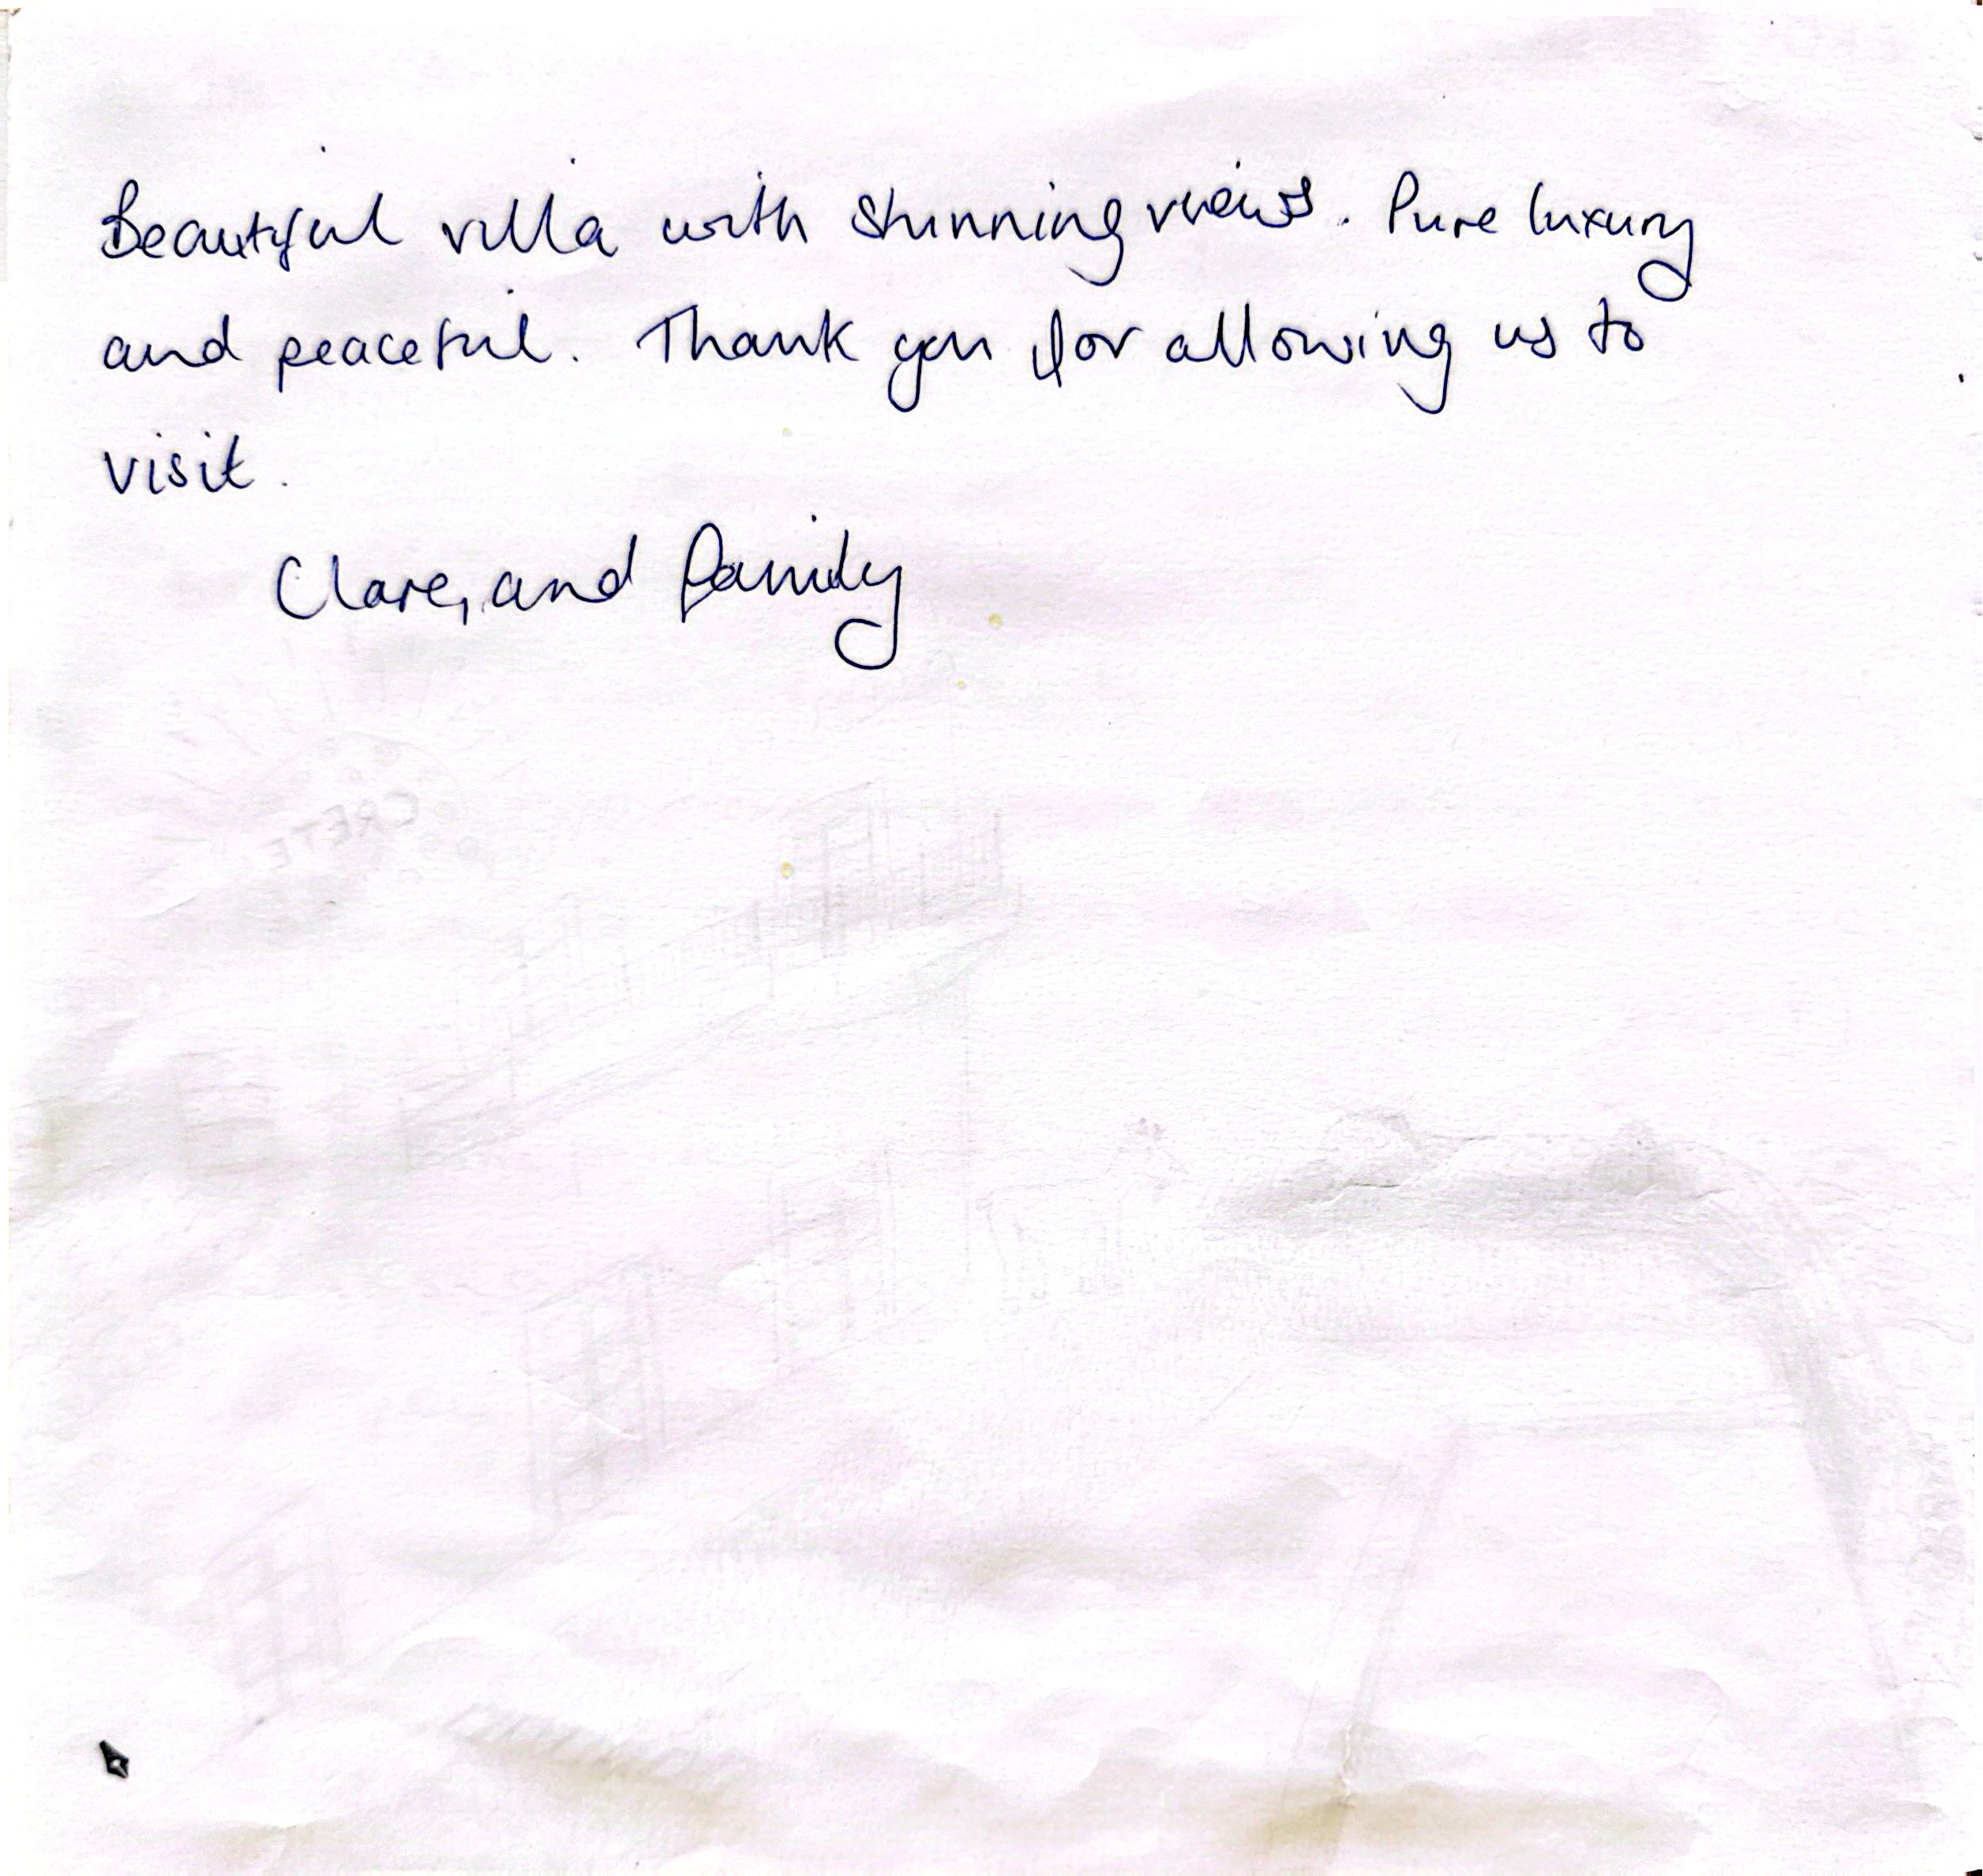 Beautiful villa with stunning views. Pure luxury
and peaceful. Thank you for allowing us to
visit.
Clare, and Family
CRETE